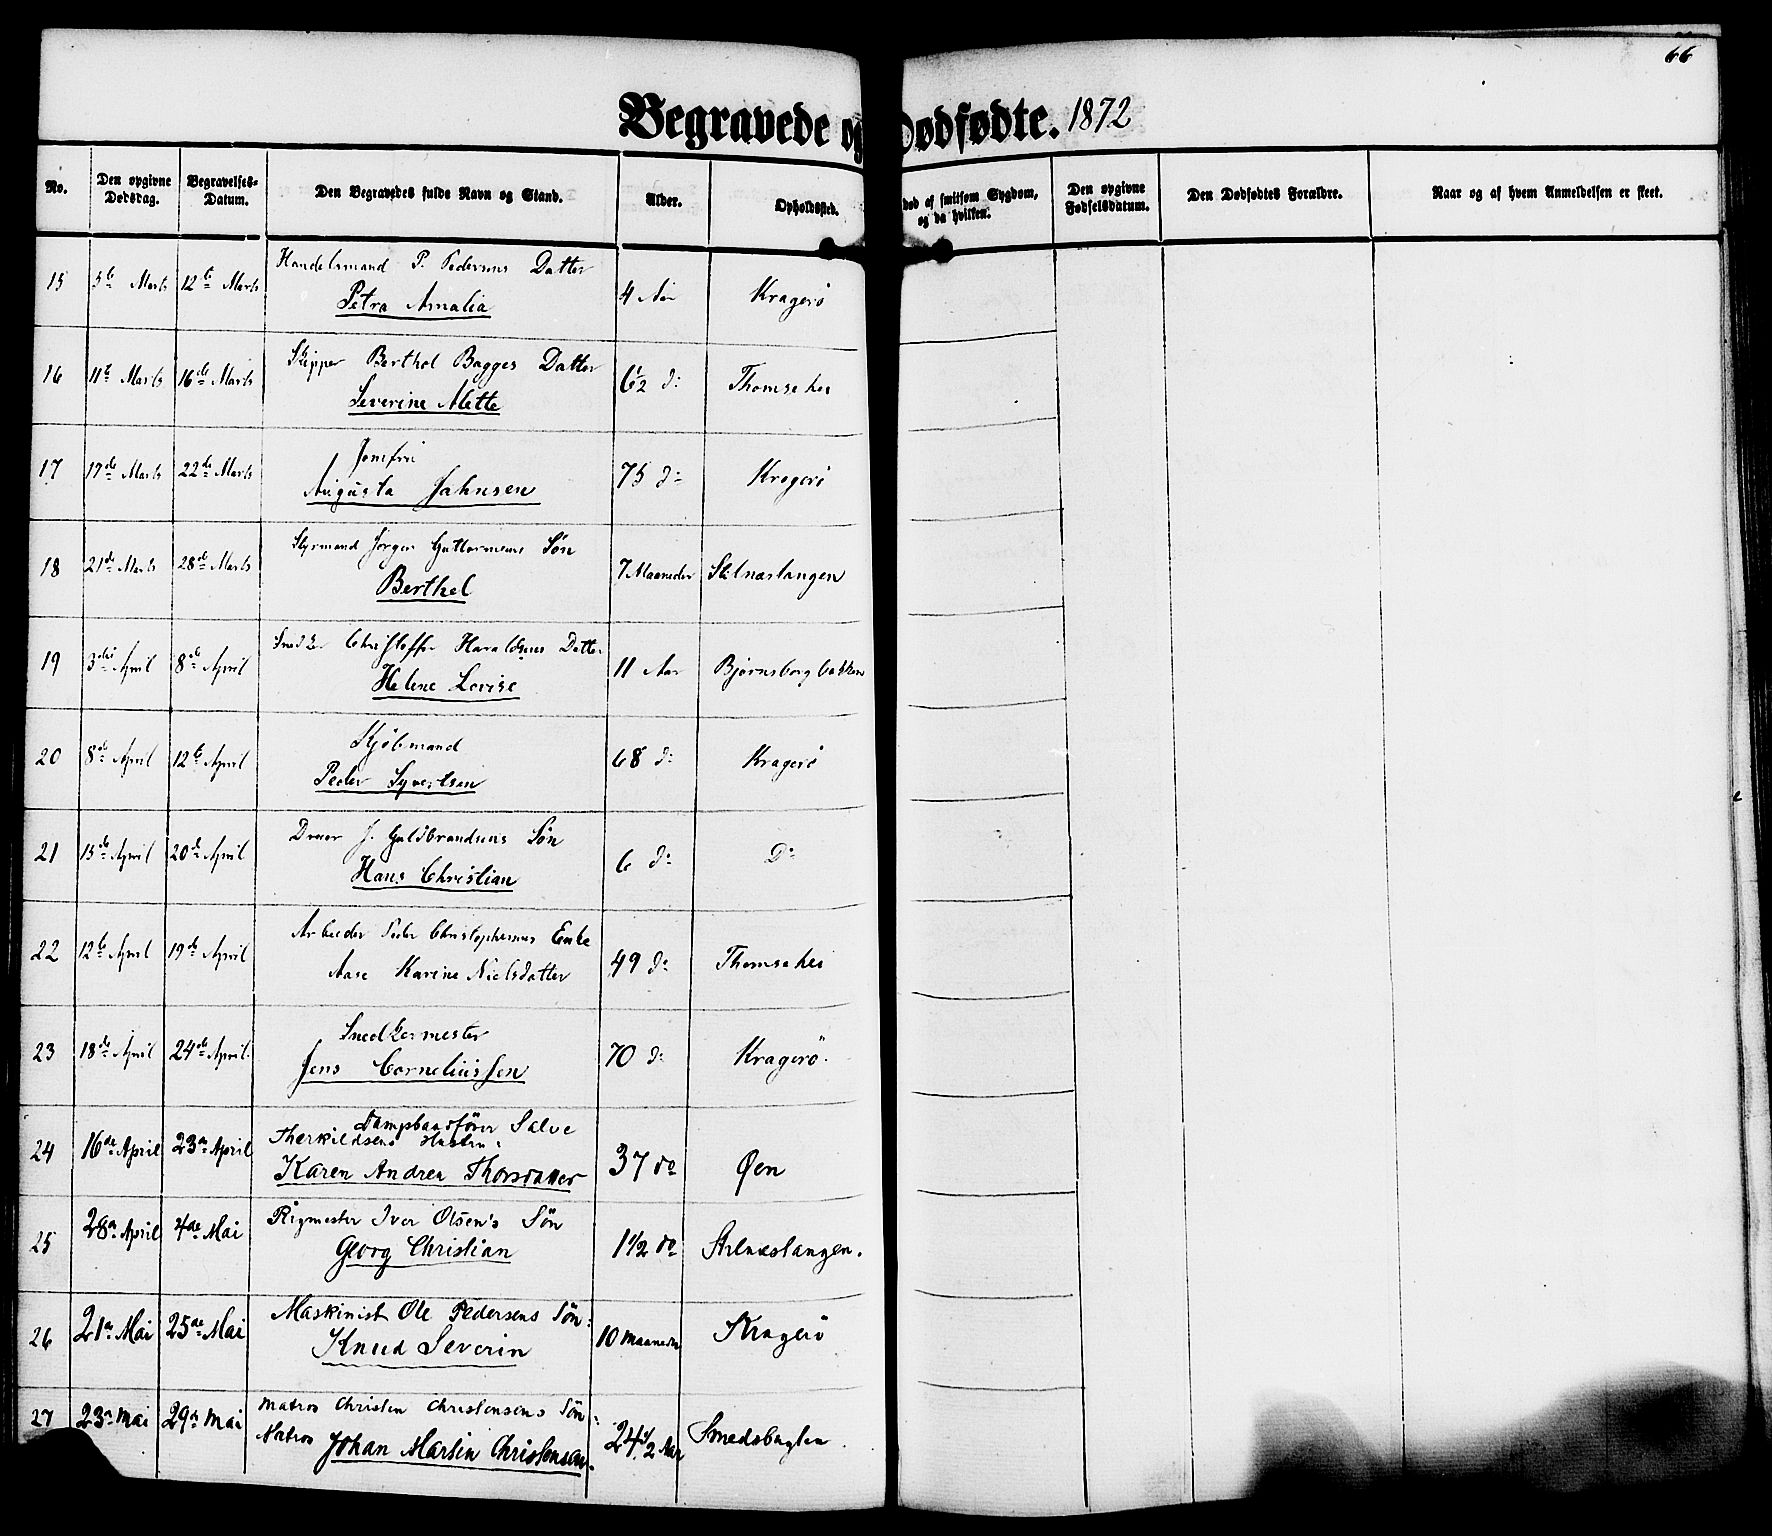 66
Begravede og Dødfødte. 1872
No. Den opgivne Dødsdag. Begravelses-Datum. Den Begravedes fulde Navn og Stand. Alder. Opholdssted. død af smitsom Sygdom, og da hvilken. Den opgivne Fødselsdatum. Den Dødfødtes Forældre. Naar og af hvem Anmeldelsen er skeet.
15 5te Marts 12te Marts Handelsmand P. Pedersens Datter
Petra Amalia 4 Aar Kragerö
16 11te Marts 16de Marts Skipper Berthel Bagges Datter
Severine Mette 6 1/2 do Thomsehei
17 17de Marts 22de Marts Jomfru
Augusta Jahnsen 75 do Kragerö
18 21de Marts 28de Marts Styrmand Jørgen Guttormsens Sön
Berthel 7 Maaneder Stilnæstangen
19 3die April 8de April Snedker Christoffer Haraldsens Datter
Helene Lovise 11 Aar Bjørnsborgbakken
20 8de April 12te April Kjöbmand
Peder Syvertsen 68 do Kragerö
21 15de April 20de April J. Guldbrandsens Sön
Hans Christian 6 do Do
22 12te April 19de April Arbeider Peder Christophersens Enke
Aase Karine Nielsdatter 49 do Thomsehei
23 18de April 24de April. Snedkermester
Jens Corneliussen 70 do Kragerö.
24 16de April 23de April Dampbaadförer Salve
Therkildsens Hustru.
Karen Andrea Thorsdatter 37 do Øen
25 28de April 4de Mai Rigmester Iver Olsen's Sön
Georg Christian 1 1/2 do Stilnæstangen.
26 21de Mai 25de Mai Maskinist Ole Pedersens Sön:
Knud Severin 10 Maaneder Kragerö
27 23de Mai 29de Mai Matros Christen Christensens Sön:
Matros Johan Martin Christensen. 24 1/2 Aar Smedsbugten.